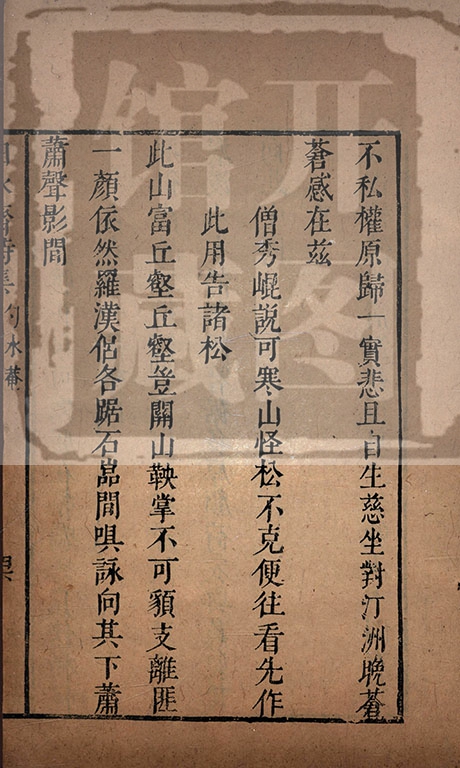 不私權原歸一實悲且自生慈坐對汀洲晚蒼
蒼感在茲
僧秀崐說可寒山怪松不克便往看先作
此用告諸松
此山富丘壑丘壑豈關山鞅掌不可䫉支離匪
一顏依然羅漢侶各踞石嵓間嗅詠向其下蕭
蕭聲影間
水齋詩集 勺水菴
开图
馆藏